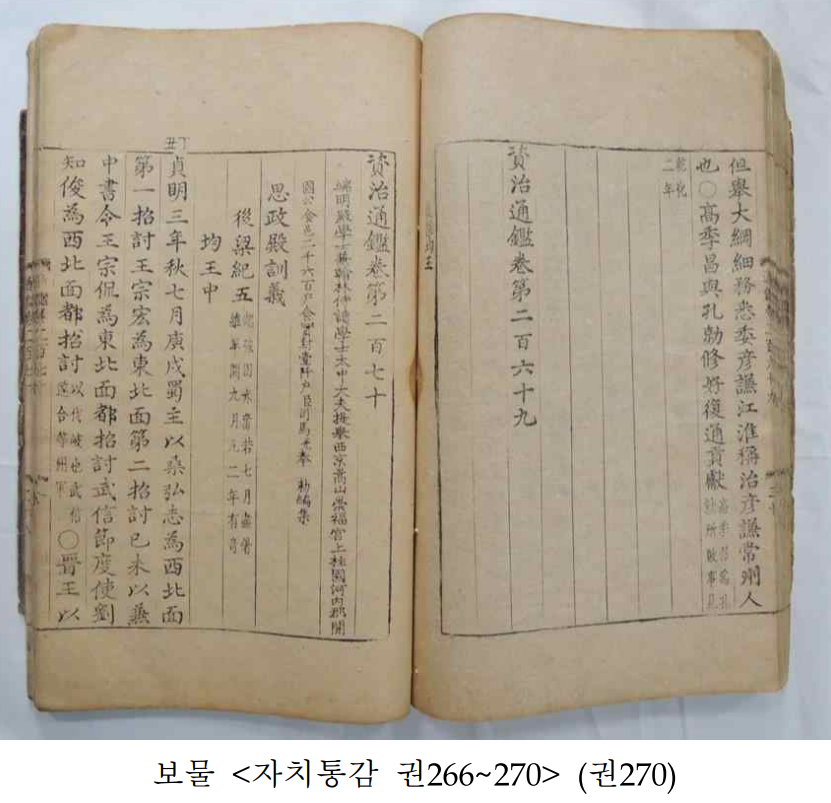 但擧大綱細務悉委彦謙江淮稱治彦謙常州人
也○高季昌與孔勍修好復通貢獻
乾化
二年
資治通鑑卷第二百六十九
資治通鑑卷第二百七十
端明殿學士兼翰林侍讀學士太中大夫提擧西京嵩山崇福宮上柱國河內郡開
國公食邑二千六百戶食實封壹阡戶臣司馬光奉 勑編集
思政殿訓義
後梁紀五
均王中
丁丑
貞明三年秋七月庚戌蜀主以桑弘志為西北面
第一招討王宗宏為東北面第二招討己未以兼
中書令王宗侃為東北面都招討武信節度使劉
知俊為西北面都招討 以伐岐也武信 ○晉王以
보물 <자치통감 권266~270> (권270)